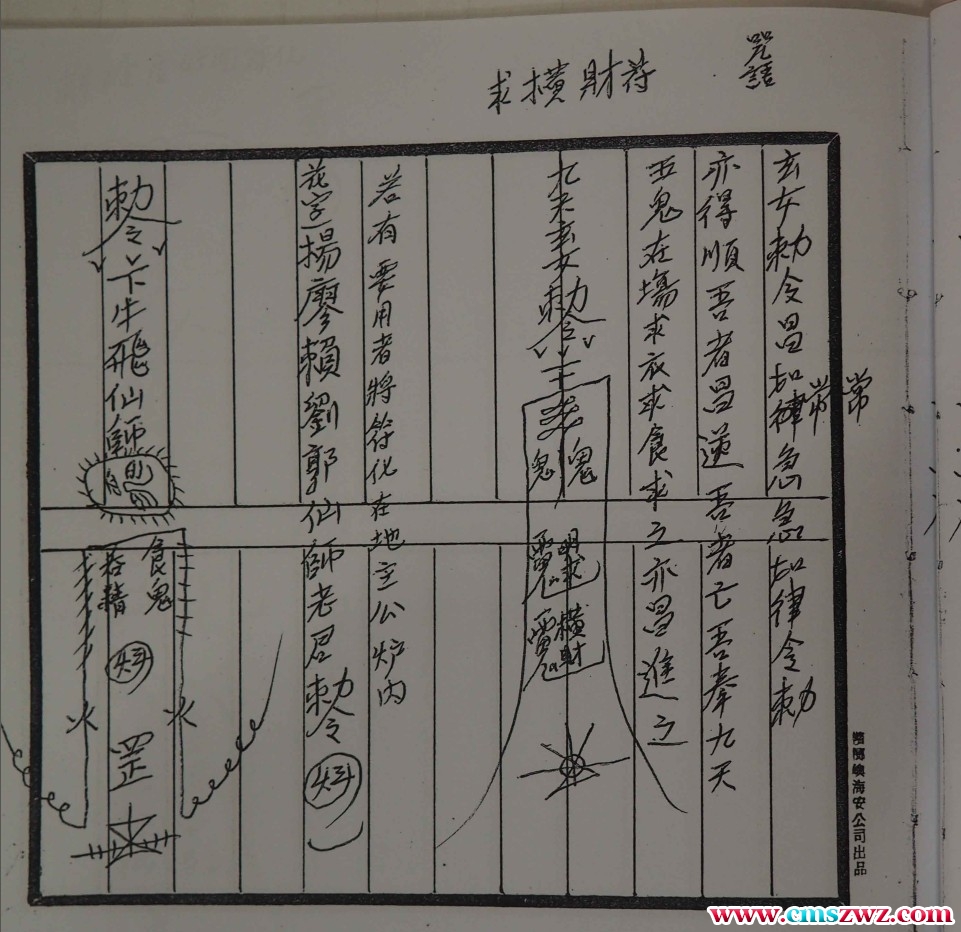 咒語
求橫財符
玄女勅令昌如律急急如律令勅
常常
亦得順吾者昌逆吾者亡吾奉九天
五鬼在塲求衣求食求之亦昌進之
九天玄女勅令
鬼鬼
橫財
若有要用者將符化在地主公炉内
花字楊廖賴劉郭仙師老君勅令
勅令卞牛飛仙師
食鬼
吞精
罡
海安公司出品
www.cmszwz.com